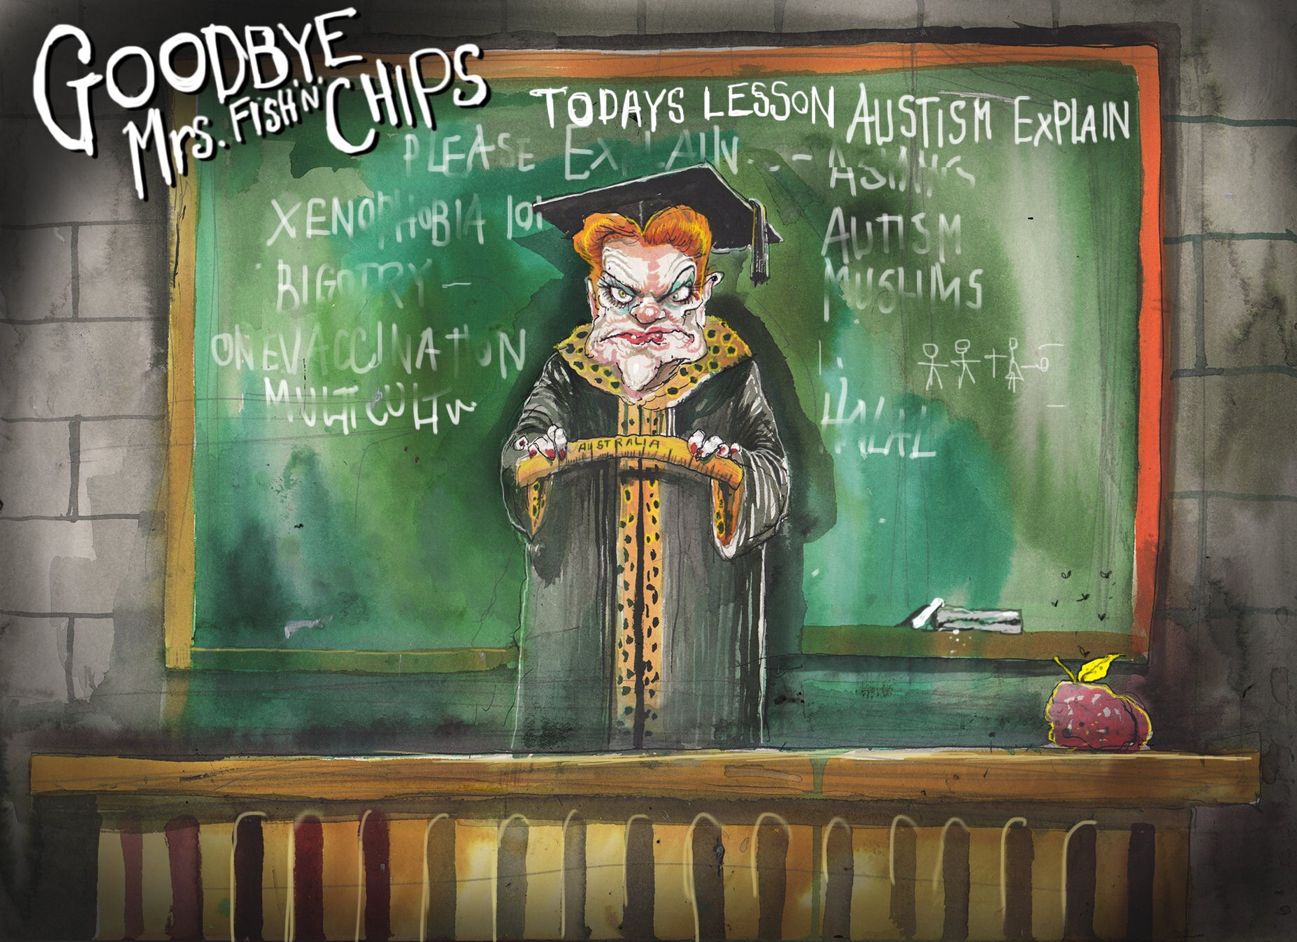 GOODBYE
Mrs. FISH'N' CHIPS
TODAYS LESSON AUSTISM EXPLAIN
PLEASE EXPLAIN...- ASIANS
XENOPHOBIA 101
AUTISM
BIGOTRY -
MUSLIMS
ONEVACCINATION
MULTICULTU
HALAL
AUSTRALIA